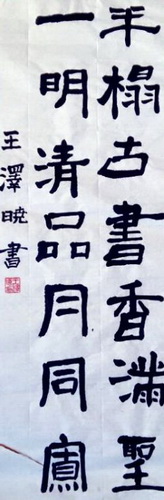 半榻古書香滿聖
一明清品月同
王澤曉書